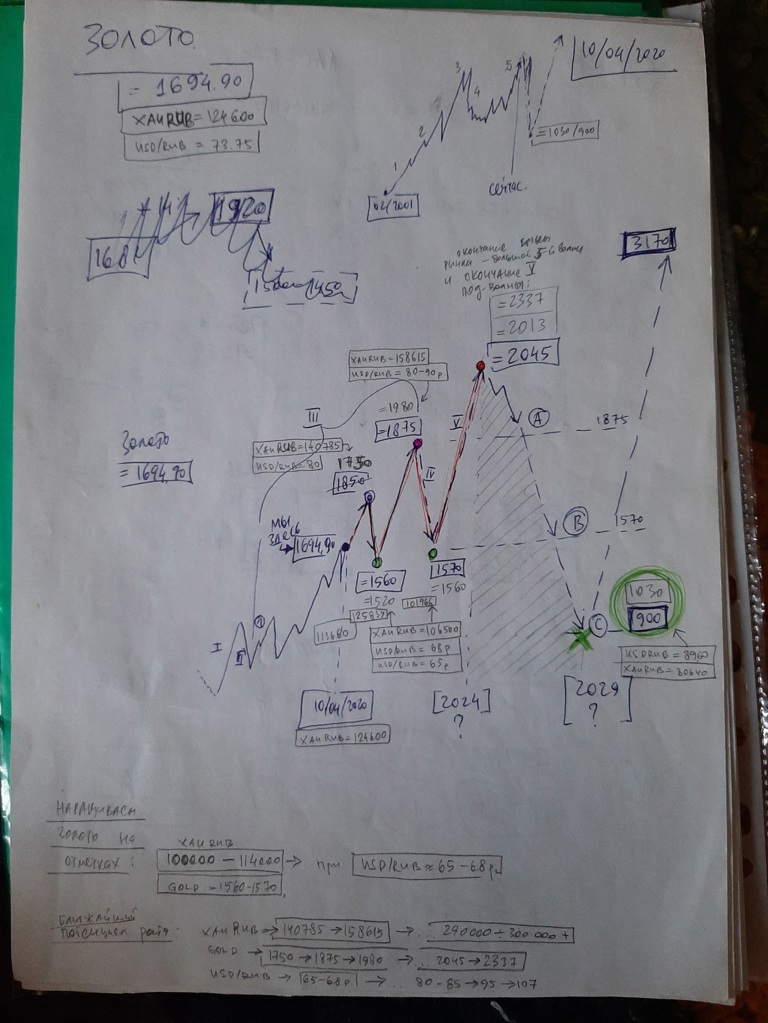 ЗОЛОТО
= 1694.90
XAURUB=124600
USD/RUB = 73.75
10/04/2020
1
2
3
4
5
=1030/900
02/2001
сейчас
1920
1450
3170
окончание
рынка – большой 5-й волны
и окончание V
под-волны:
= 2337
= 2013
= 2045
XAURUB=158615
USD/RUB = 80-90р
= 1980
= 1875
III
XAURUB=140785
USD/RUB=80
1750
1850
V
IV
A
1875
Золото
= 1694.90
МЫ
ЗДЕСЬ
1694.90
B
1570
=1560
=1520
125837
1570
=1560
101966
113680
XAURUB=106500
USD/RUB = 68р
USD/RUB = 65р
I
II
C
1030
900
USDRUB = 8960
XAURUB=80640
10/04/2020
XAURUB=124600
[2024]
?
[2029]
?
НАРАЩИВАЕМ
ЗОЛОТО НА
ОТМЕТКАХ:
XAURUB
100000 – 114000 → при USD/RUB=65-68р
GOLD =1560-1570
БЛИЖАЙШИЙ
ПОТЕНЦИАЛ РОСТА:
XAURUB → 140785 → 158615 → .. 290000 ÷ 300000 +
GOLD → 1750 → 1875 → 1980 → .. 2045 → 2337
USD/RUB → 65-68р → .. 80-85 → 95 → 107